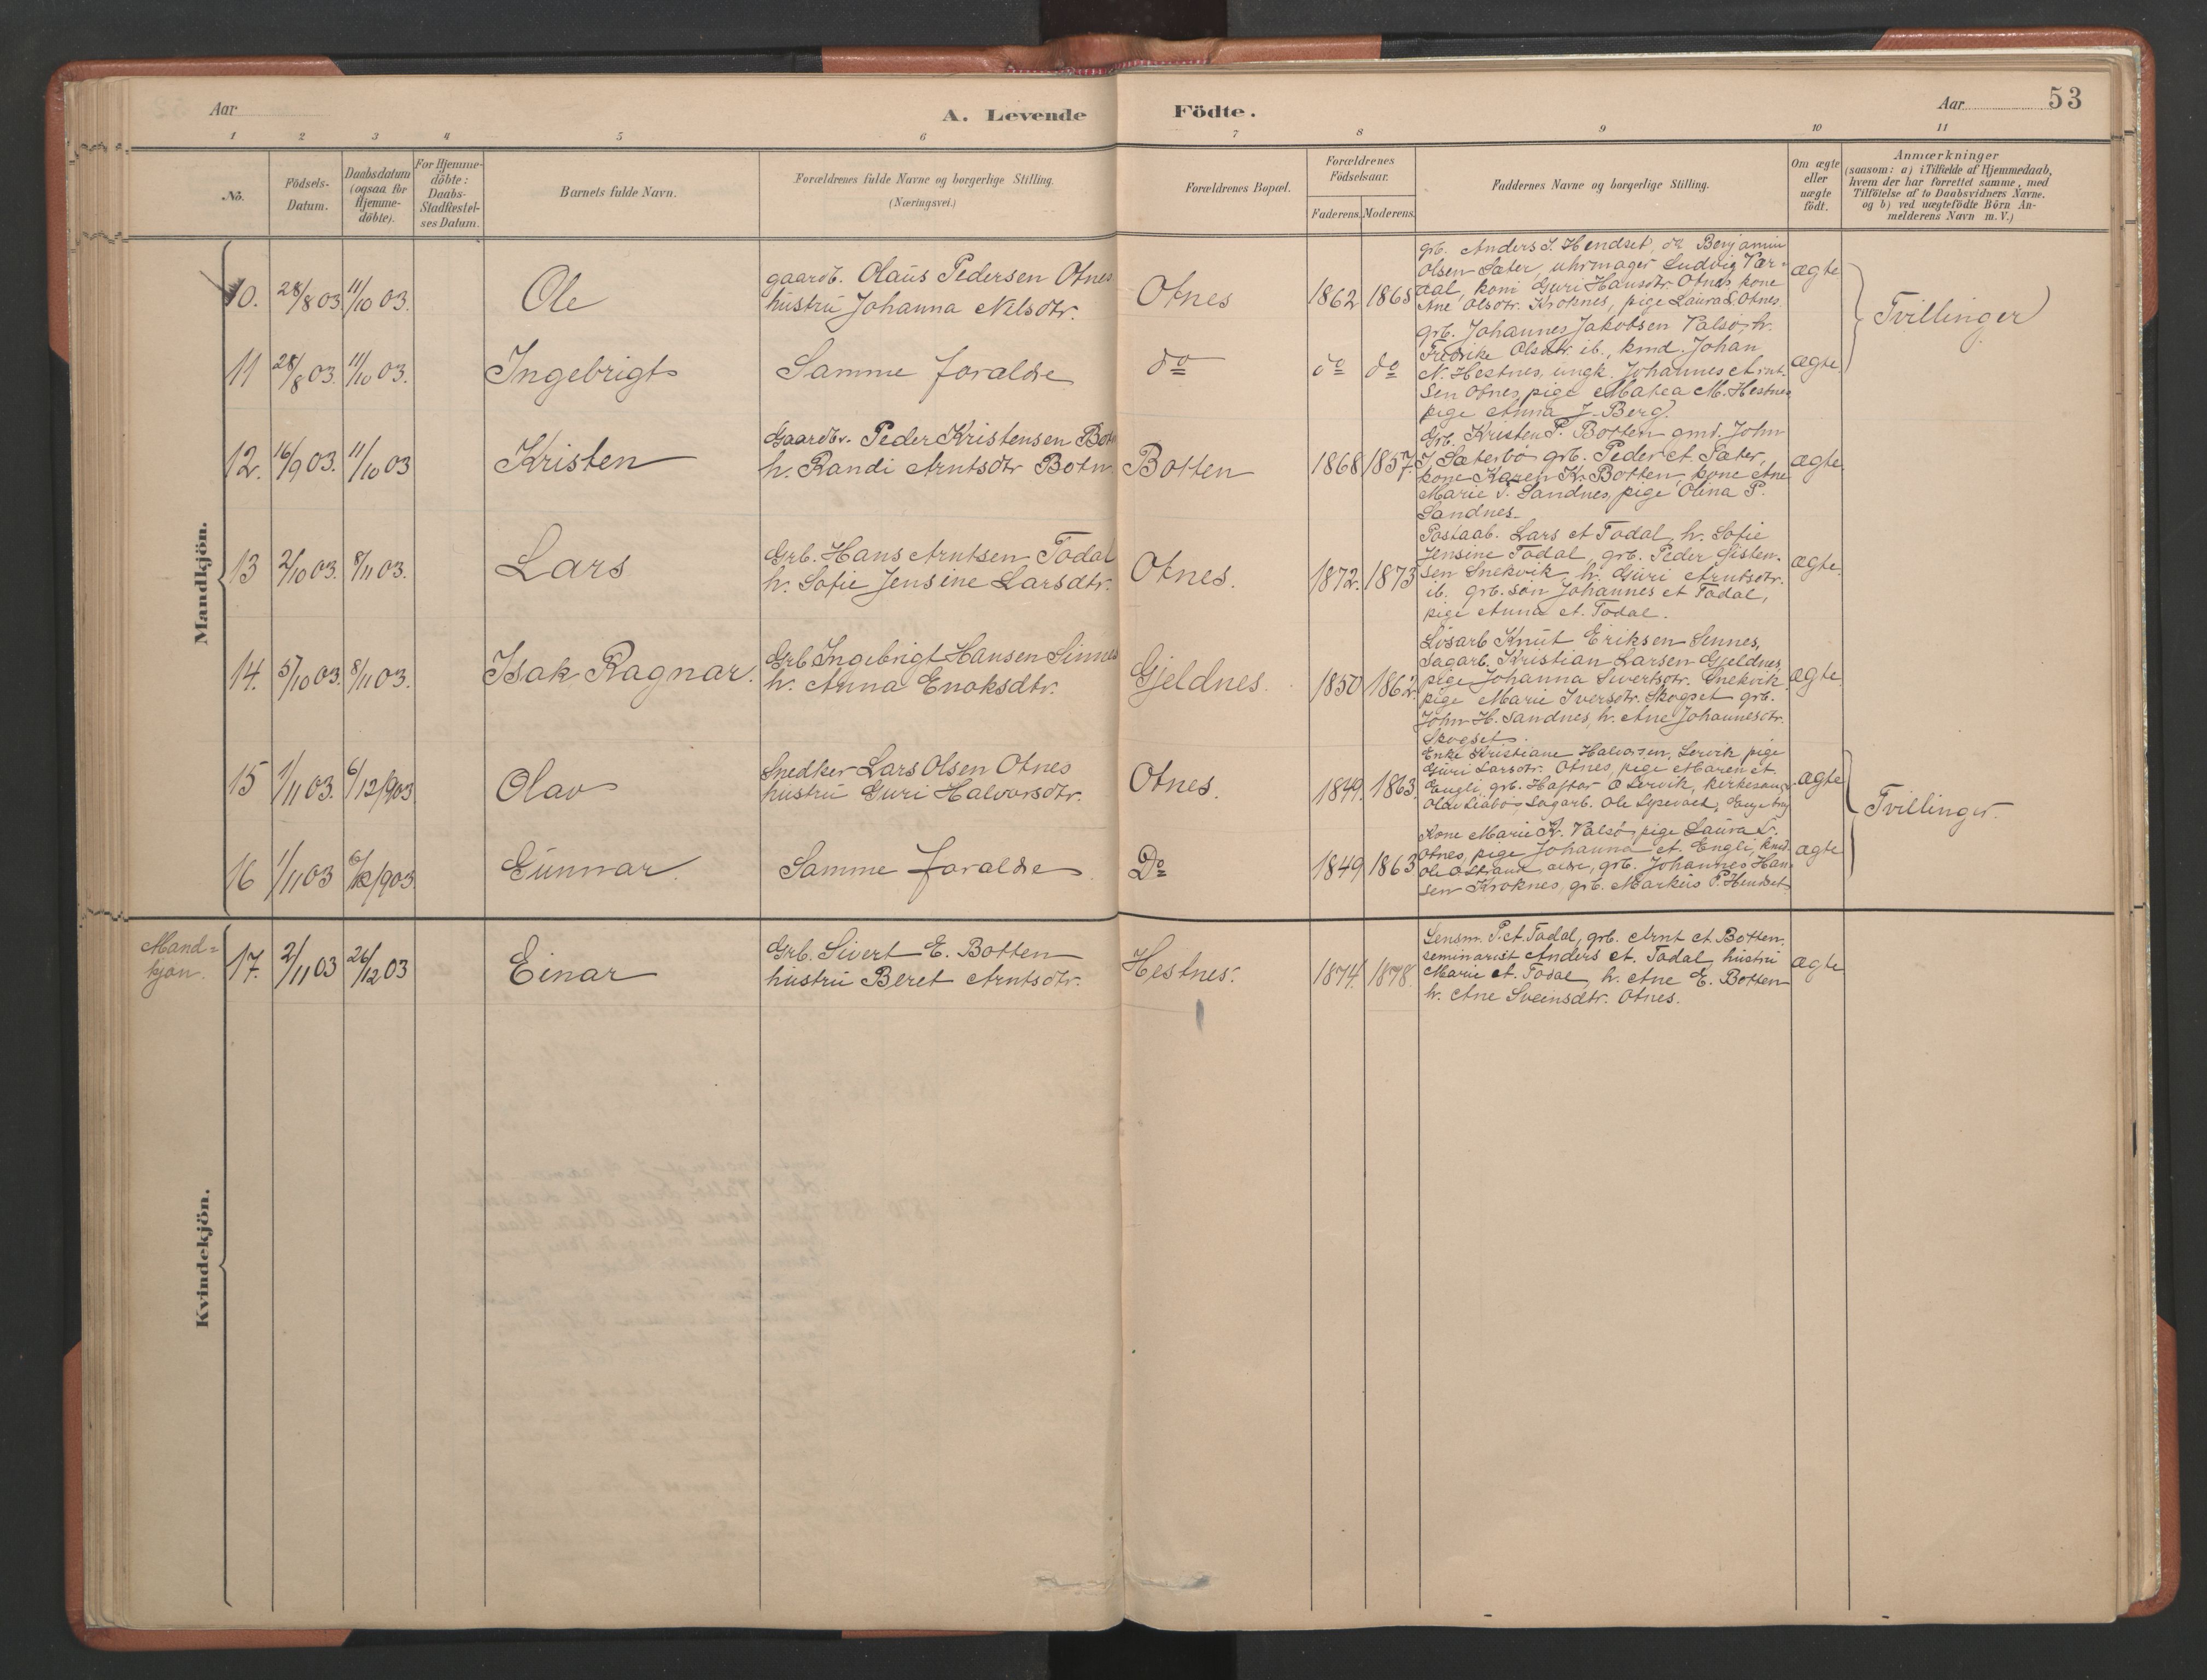 Aar
A. Levende Födte.
Aar 53
1 2 3 4 5 6 7 8 9 10 11
No.
Födsels-
Datum.
Daabsdatum
(ogsaa for
Hjemme-
döbte).
For Hjemme-
döbte:
Daabs-
Stadfæstel-
ses Datum.
Barnets fulde Navn.
Forældrenes fulde Navne og borgerlige Stilling.
(Næringsvei.)
Forældrenes Bopæl.
Forældrenes
Födselsaar.
Faderens. Moderens.
Faddernes Navne og borgerlige Stilling.
Om ægte
eller
uægte
födt.
Anmærkninger
(saasom: a) i Tilfælde af Hjemmedaab,
hvem der har forrettet samme, med
Tilföielse af to Daabsvidners Navne.
og b) ved uægtefödte Börn An-
melderens Navn m. V.)
Mandkjön.
10. 28/8 03. 11/10 03. Ole
gaardb. Olaus Pedersen Otnes
hustru Johanna Nilsdtr.
Otnes 1862 1865
grb. Anders I. Hendset, do Benjamin
Olsen Sæter, uhrmager Ludvig Vær-
dal, koni Guri Hansdtr. Otnes, kone
Ane Olsdtr. Kroknes, pige Laura L. Otnes.
ægte
Tvillinger
11 28/8 03. 11/10 03. Ingebrigt
Samme foraldre
do do do
grb. Johannes Jakobsen Valsö, h.
Fredrike Olsdtr. ib., kmd. Johan
N. Hestnes, ungk. Johannes Arnt-
sen Otnes, pige Matea M. Hestnes
pige Anna J. Berg.
ægte.
12. 16/9 03. 11/10 03 Kristen
Gaardbr. Peder Kristensen Botn
h. Randi Arntsdtr Botn.
Botten 1868 1857.
Grb. Kristen P. Botten gmd. John
J. Sæterbö grb. Peder A. Sæter,
kone Karen K. Botten, kone Ane
Marie T. Sandnes, pige Olina P.
Sandnes.
ægte.
13 2/10 03. 8/11 03. Lars
Grb. Hans Arntsen Todal
h. Sofie Jensine Larsdtr.
Otnes. 1872. 1873
Postaab. Lars A Todal, h. Sofie
Jensine Todal, grb. Peder Gisten-
sen Snekvik, h. Guri Arntsdtr.
ib. grb. sön Johannes A Todal,
pige Anna A. Todal.
ægte.
14. 5/10 03. 8/11 03. Isak Ragnar.
Grb Ingebrigt Hansen Sinnes
h. Anna Enoksdtr.
Gjeldnes. 1850 1862.
Lösarb Knut Eriksen Sennes,
Sagarb. Kristian Larsen Gjeldnes,
pige Johanna Sivertsdtr. Snekvik
pige Marie Iversdtr. Skogset grb.
John H. Sandnes, h. Ane Johannesdtr.
Skogset.
ægte.
15 1/11 03. 6/12/903 Olav
Snedker Lars Olsen Otnes
hustru Guri Halvorsdtr.
Otnes. 1849. 1863.
Enke Kristiane Halvorsen, Lervik pige
Guri Larsdtr. Otnes, pige Maren A.
Engli, grb. Haftor O Lervik, kirkesang.
Olav Liabö, Sagarb. Ole
ægte
Tvillinger.
16 1/11 03 6/12/903 Gunnar.
Samme foraldre.
Do 1849 1863
Kone Marie K. Valsö, pige Laura L.
Otnes, pige Johanna A. Engli, kmd.
Ole O Strand, grb. Johannes Han-
sen Kroknes, grb. Markus P. Hendset
ægte
Mand-
kjön.
17. 2/11 03 26/12 03 Einar
Grb. Sivert E. Botten
hustru Beret Arntsdtr.
Hestnes. 1874. 1878.
Lensm. P. A. Todal, grb. Arnt A. Botten,
seminarist Anders A. Todal, hustru
Marie A. Todal, h. Ane E. Botten
h. Ane Sveinsdtr. Otnes.
ægte
Kvindekjön.